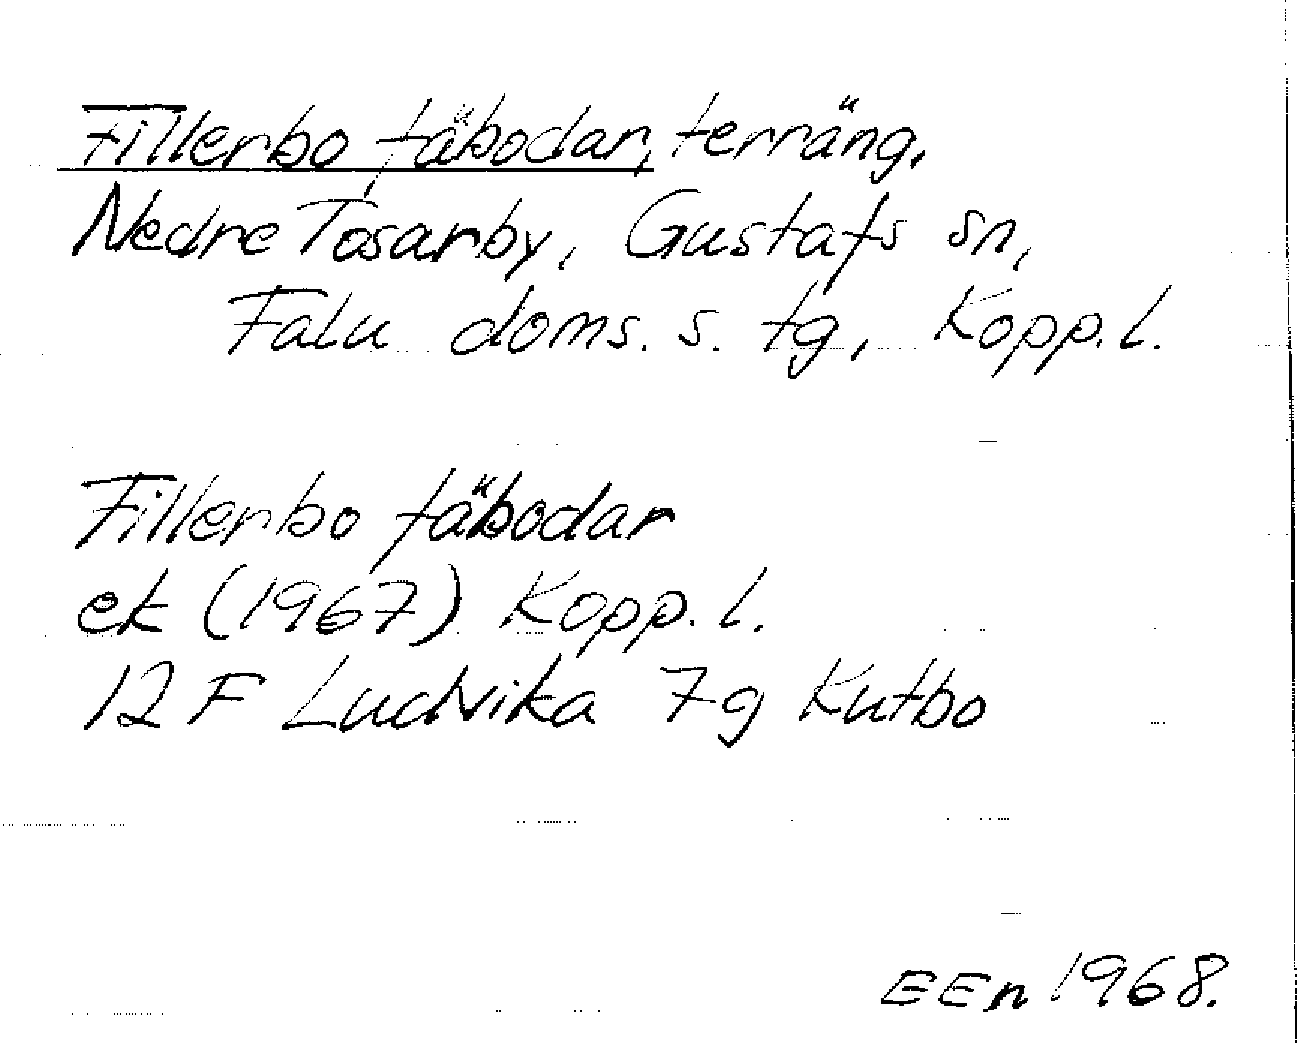 Fillerbo fäbodar, terräng,
Nedre Tosarby, Gustafs sn,
Falu doms. s. tg, Kopp. l.
Fillerbo fäbodar
ek (1967) Kopp. l.
12 F Ludvika 7g Kutbo
EEn 1968.